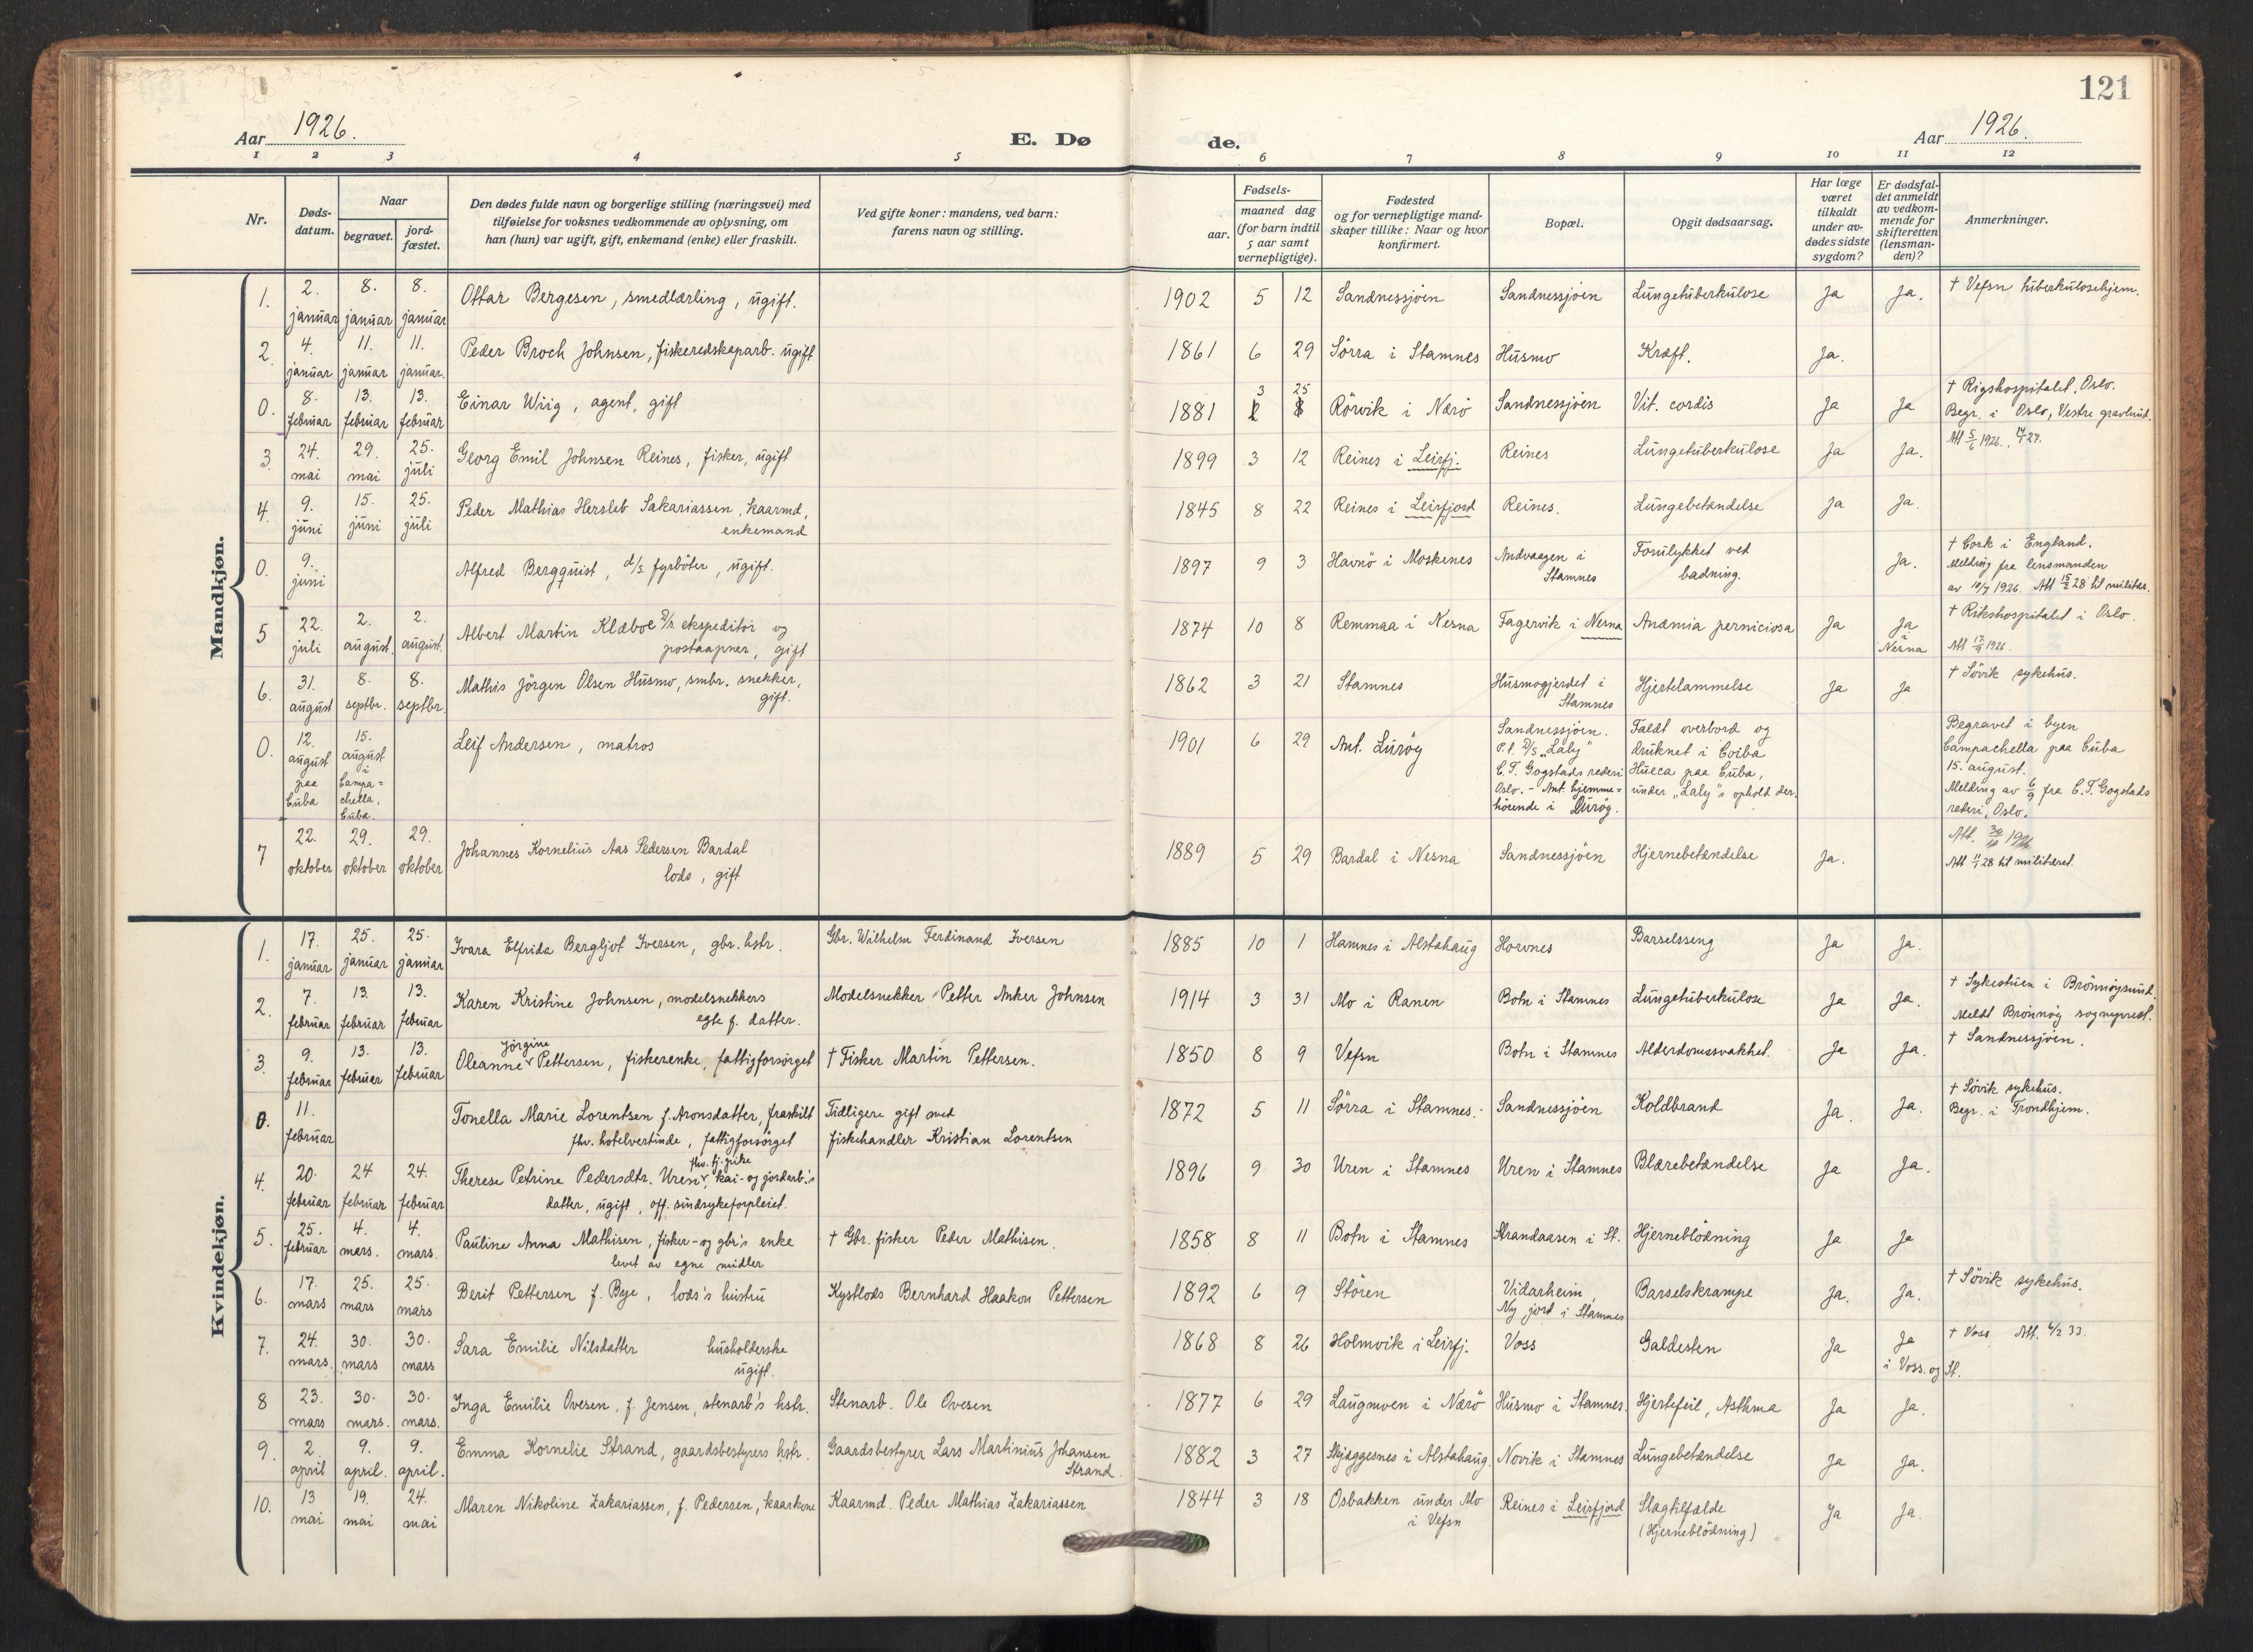 121
Aar 1926.
E. Dø de.
Aar 1926.
1 2 3 4 5 6 7 8 9 10 11 12
Nr.
Døds-
datum.
Naar
begravet.
jord-
fæstet.
Den dødes fulde navn og borgerlige stilling (næringsvei) med
tilføielse for voksnes vedkommende av oplysning, om
han (hun) var ugift, gift, enkemand (enke) eller fraskilt.
Ved gifte koner: mandens, ved barn:
farens navn og stilling.
Fødsels-
aar.
maaned dag
(for barn indtil
5 aar samt
vernepligtige).
Fødested
og for vernepligtige mand-
skaper tillike: Naar og hvor
konfirmert.
Bopæl.
Opgit dødsaarsag.
Har læge
været
tilkaldt
under av-
dødes sidste
sygdom?
Er dødsfal-
det anmeldt
av vedkom-
mende for
skifteretten
(lensman-
den)?
Anmerkninger.
Mandkjøn.
1. 2. januar 8. januar 8. januar Ottar Bergesen, smedlærling, ugift. 1902 5 12 Sandnessjøen Sandnessjøen Lungetuberkulose Ja Ja. † Vefsn tuberkulosehjem.
2. 4. januar 11. januar 11. januar. Peder Broch Johnsen, fiskeredskaparb. ugift 1861 6 29 Sörra i Stamnes Husmo Kræft. Ja.
0. 8. februar 13. februar 13. februar Einar Wiig, agent, gift 1881 3 25 Rörvik i Nærö Sandnessjöen Vit. cordis Ja Ja † Rigshospitalet, Oslo.
Begr. i Oslo, Vestre gravlund.
3. 24. mai 29. mai 25. juli Georg Emil Johnsen Reines, fisker, ugift 1899 3 12 Reines i Leirfj. Reines Lungetuberkulose Ja Ja. Att 5/6 1926.
4. 9. juni 15. juni 25. juli Peder Mathias Hersleb Sakariassen, kaarmd,
enkemand 1845 8 22 Reines i Leirfjord Reines. Lungebetændelse Ja Ja.
0. 9. juni Alfred Bergquist, d/s. fyrböter, ugift. 1897 9 3 Havnö i Moskenes Andvaagen i
Stamnes Forulykket ved
badning. Ja. † Cork i England.
Melding fra lensmanden
av 10/7 1926. Att 15/2 28 til militær.
5 22. juli 2. august. 2. august. Albert Martin Klæboe D/s. ekspeditör og
postaapner, gift 1874 10 8 Remmaa i Nesna Fagervik i Nesna Anæmia perniciosa Ja Ja
i
Nesna † Rikshospitalet i Oslo.
6. 31. august 8. septbr. 8. septbr. Mathis Jörgen Olsen Husmo, smbr. snekker,
gift. 1862 3 21 Stamnes Husmogjerdet i
Stamnes Hjertelammelse Ja Ja † Sövik sykehus.
0. 12.
august
paa
Cuba 15.
august
i
Campa-
chella,
Cuba. Leif Andersen, matros 1901 6 29 Ant. Luröy Sandnessjöen.
P.t. D/s "Laly"
C. T. Gogstads rederi
Oslo. - Ant. hjemme-
hörende i Luröy. Faldt overbord og
druknet i Coiba
Hueca paa Cuba,
under "Laly"s ophold der. Begravet i byen
Campachella paa Cuba
15. august.
Melding av 6/9 fra C. T. Gogstads
rederi, Oslo.
7 22. oktober 29. oktober 29. oktober Johannes Kornelius Aas Pedersen Bardal
lods, gift 1889 5 29 Bardal i Nesna Sandnessjöen Hjernebetændelse Ja. Att. 30/10 1926
Att 11/1 28 til militæret.
Kvindekjøn.
1. 17. januar 25. januar 25. januar Ivara Elfrida Bergljot Iversen, gbr. hstr. Gbr. Wilhelm Ferdinand Iversen 1885 10 1 Hamnes i Alstahaug Horvnes Barselseng Ja Ja.
2. 7. februar 13. februar 13. februar Karen Kristine Johnsen, modelsnekkers
egte f. datter. Modelsnekker Petter Anker Johnsen 1914 3 31 Mo i Ranen Botn i Stamnes Lungetuberkulose Ja Ja. † Sykestuen i Brönnöysund.
Meldt Brönnöy sogneprest.
3. 9. februar 13. februar 13. februar Oleanne Jörgine Pettersen, fiskerenke, fattigforsörget † Fisker Martin Pettersen. 1850 8 9 Vefsn Botn i Stamnes Alderdomssvakhet. Ja Ja. † Sandnessjöen.
0. 11. februar Tonella Marie Lorentsen f. Aronsdatter, fraskilt
fhv. hotelvertinde, fattigforsörget Tidligere gift med
fiskehandler Kristian Lorentsen 1872 5 11 Sörra i Stamnes. Sandnessjöen Koldbrand Ja. Ja. † Sövik sykehus.
Begr. i Trondhjem.
4. 20. februar 24 februar 24. februar Therese Petrine Pedersdtr. Uren, fhv. tj. pike kai- og jordarb.'s
datter, ugift, off. sindsykeforpleiet. 1896 9 30 Uren i Stamnes Uren i Stamnes Blærebetændelse Ja Ja.
5. 25. februar 4. mars. 4. mars. Pauline Anna Mathisen, fisker- og gbr's enke
levet av egne midler † Gbr. fisker Peder Mathisen. 1858 8 11 Botn i Stamnes Strandaasen i St. Hjerneblödning Ja Ja
6. 17. mars 25. mars 25. mars Berit Pettersen f. Bye, lods's hustru Kystlods Bernhard Haakon Pettersen 1892 6 9 Stören Vidarheim,
Ny jord i Stamnes Barselskrampe Ja. Ja. † Sövik sykehus.
7. 24. mars. 30. mars 30. mars Sara Emilie Nilsdatter husholderske
ugift. 1868 8 26 Holmvik i Leirfj. Voss Galdesten Ja Ja
i Voss. og St. † Voss Att. 6/2 33.
8 23. mars 30. mars. 30. mars. Inga Emilie Ovesen, f. Jensen, stenarb's hstr. Stenarb. Ole Ovesen 1877 6 29 Laugmoen i Nærö Husmo i Stamnes. Hjertefeil, Asthma Ja Ja.
9. 2. april 9. april. 9. april. Emma Kornelie Strand, gaardsbestyrers hstr. Gaardsbestyrer Lars Martinius Johansen
Strand. 1882 3 27 Skjæggesnes i Alstahaug. Novik i Stamnes Lungebetændelse Ja Ja.
10. 13 mai 19. mai 24. mai Maren Nikoline Zakariassen, f. Pedersen, kaarkone Kaarmd. Peder Mathias Zakariassen 1844 3 18 Osbakken under Mo
i Vefsn Reines i Leirfjord Slagtilfælde
(Hjerneblödning) Ja Ja.